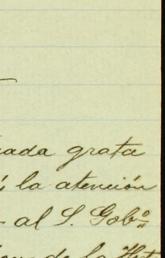 ada grata
la atención
al S. Gobº
de la